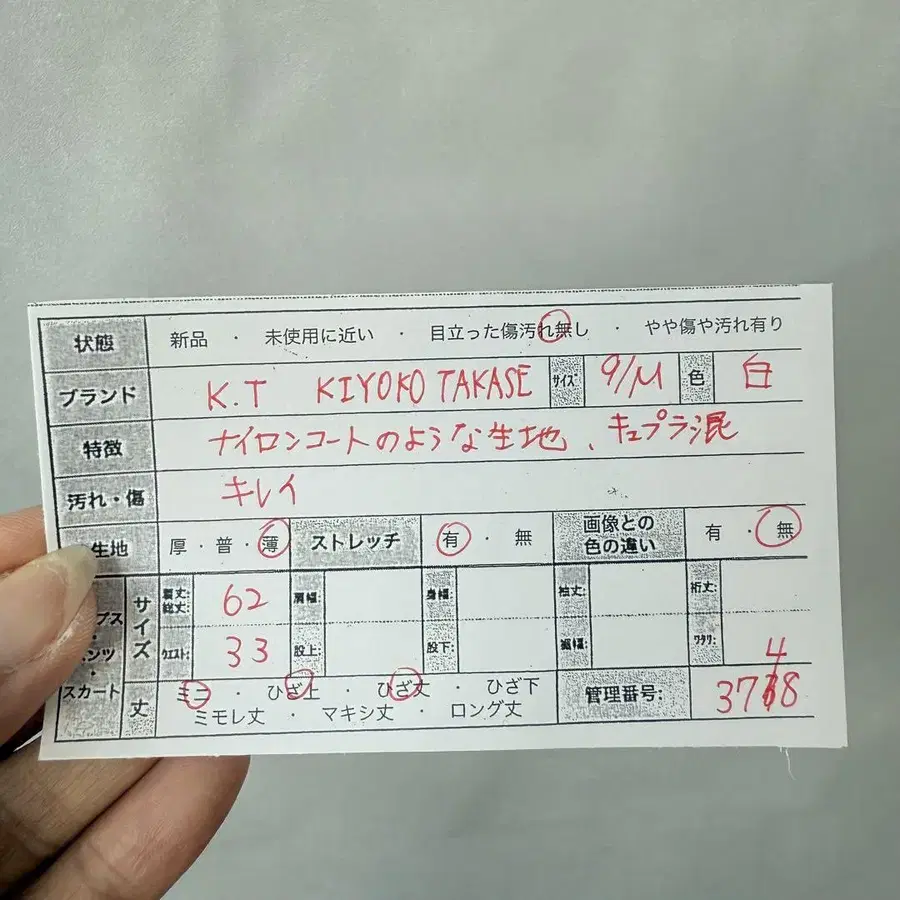 状態 新品 ・ 未使用に近い ・ 目立った傷汚れ無し ・ やや傷や汚れ有り
ブランド K.T KIYOKO TAKASE サイズ 9/M 色 白
特徴 ナイロンコートのような生地、キュプラ混
汚れ・傷 キレイ
生地 厚・普・薄 ストレッチ 有・無 画像との色の違い 有・無
サイズ 着丈:総丈: 62 肩幅: 身幅: 袖丈: 裄丈:
ウエスト: 33 股上: 股下: 裾幅: ワタリ:
スカート 丈 ミニ ・ ひざ上 ・ ひざ丈 ・ ひざ下
ミモレ丈 ・ マキシ丈 ・ ロング丈
管理番号: 3748